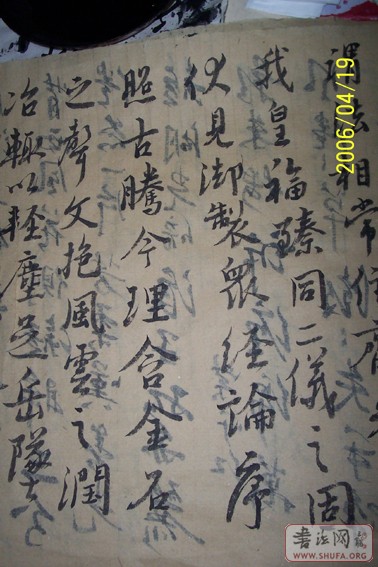 謂法相常住齊
我皇福臻同二儀之固
伏見御製衆経論序
照古騰今理含金石
之聲文抱風雲之潤
治輒以軽塵足岳墜
2006/04/19
書法网
WWW.SHUFA.ORG